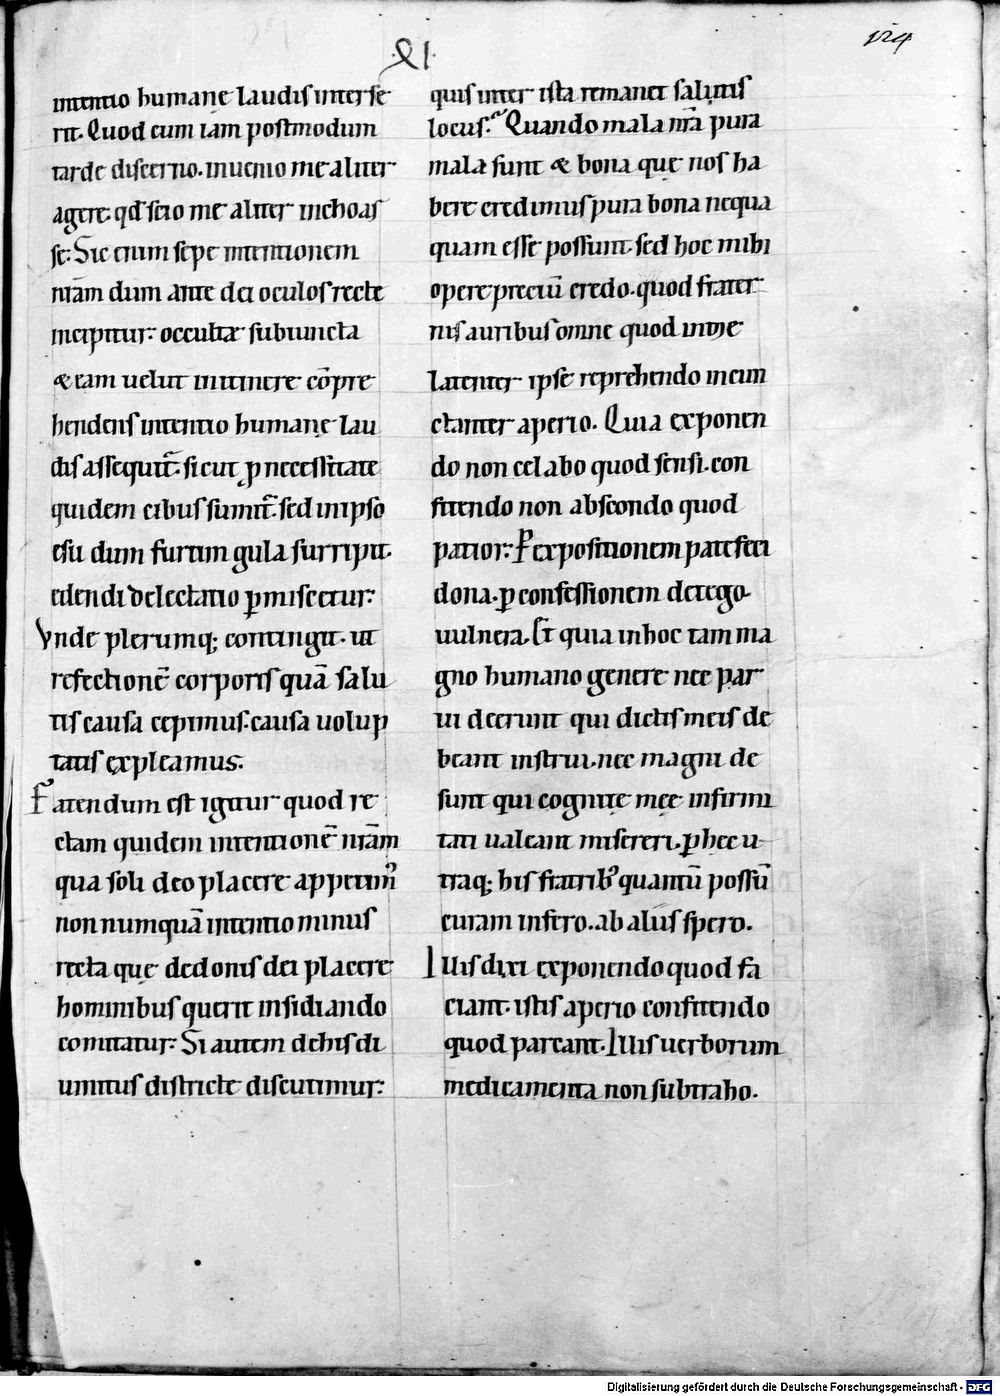 XI.
124
intentio humanę laudis interse
rit. Quod cum iam postmodum
tarde discerno. inuenio me aliter
agere. qd scio me aliter inchoas
se. Sic enim sępe intentionem
nr̄am dum ante dei oculos recte
incipitur. occultæ subiuncta
& eam uelut in itinere cōpre
hendens intentio humanę lau
dis assequit̄. sicut ꝑ necessitate
quidem cibus sumit̄. sed in ipso
esu dum furtim gula surripit.
edendi delectatio ꝑmiscetur.
Vnde plerumq; contingit. ut
refectionē corporis quā salu
tis causa cepimus. causa uolup
tatis expleamus.
Fatendum est igitur quod re
ctam quidem intentionē nr̄am
qua soli deo placere appetim᾿
non numquā intentio minus
recta quę de donis dei placere
hominibus querit insidiando
comitatur. Si autem de his di
uinitus districte discutimur.
quis inter ista remanet salutis
locus. Quando mala nr̄a pura
mala sunt & bona quę nos ha
bere credimus pura bona nequa
quam esse possunt. sed hoc mihi
opere preciū credo. quod frater
nis auribus omne quod in me
latenter ipse reprehendo incun
ctanter aperio. Quia exponen
do non celabo quod sensi. con
fitendo non abscondo quod
patior. P expositionem patefeci
dona. ꝑ confessionem detego
uulnera. Et quia in hoc tam ma
gno humano genere nec par
ui deerunt qui dictis meis de
beant instrui. nec magni de
sunt qui cognitę meę infirmi
tati ualeant misereri. ꝑ hec u
traq; his fratrib᾿ quantū possū
curam infero. ab aliis spero.
Illis dixi exponendo quod fa
ciant. istis aperio confitendo
quod parcant. Illis uerborum
medicamenta non subtraho.
Digitalisierung gefördert durch die Deutsche Forschungsgemeinschaft - DFG